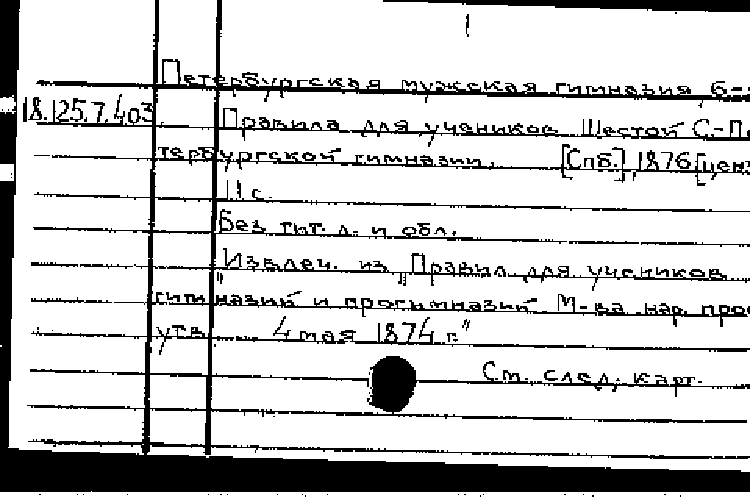 Петербургская мужская гимназия, 6-
18.125.7.403
Правила для учеников Шестой С.-Пе
тербургской гимназии. [Спб.], 1876 [ценз
11 с.
Без тит. л. и обл.
"Извлеч. из „Правил для учеников
гимназий и прогимназий М-ва нар. прос
утв. 4 мая 1874 г."
См. след. карт.